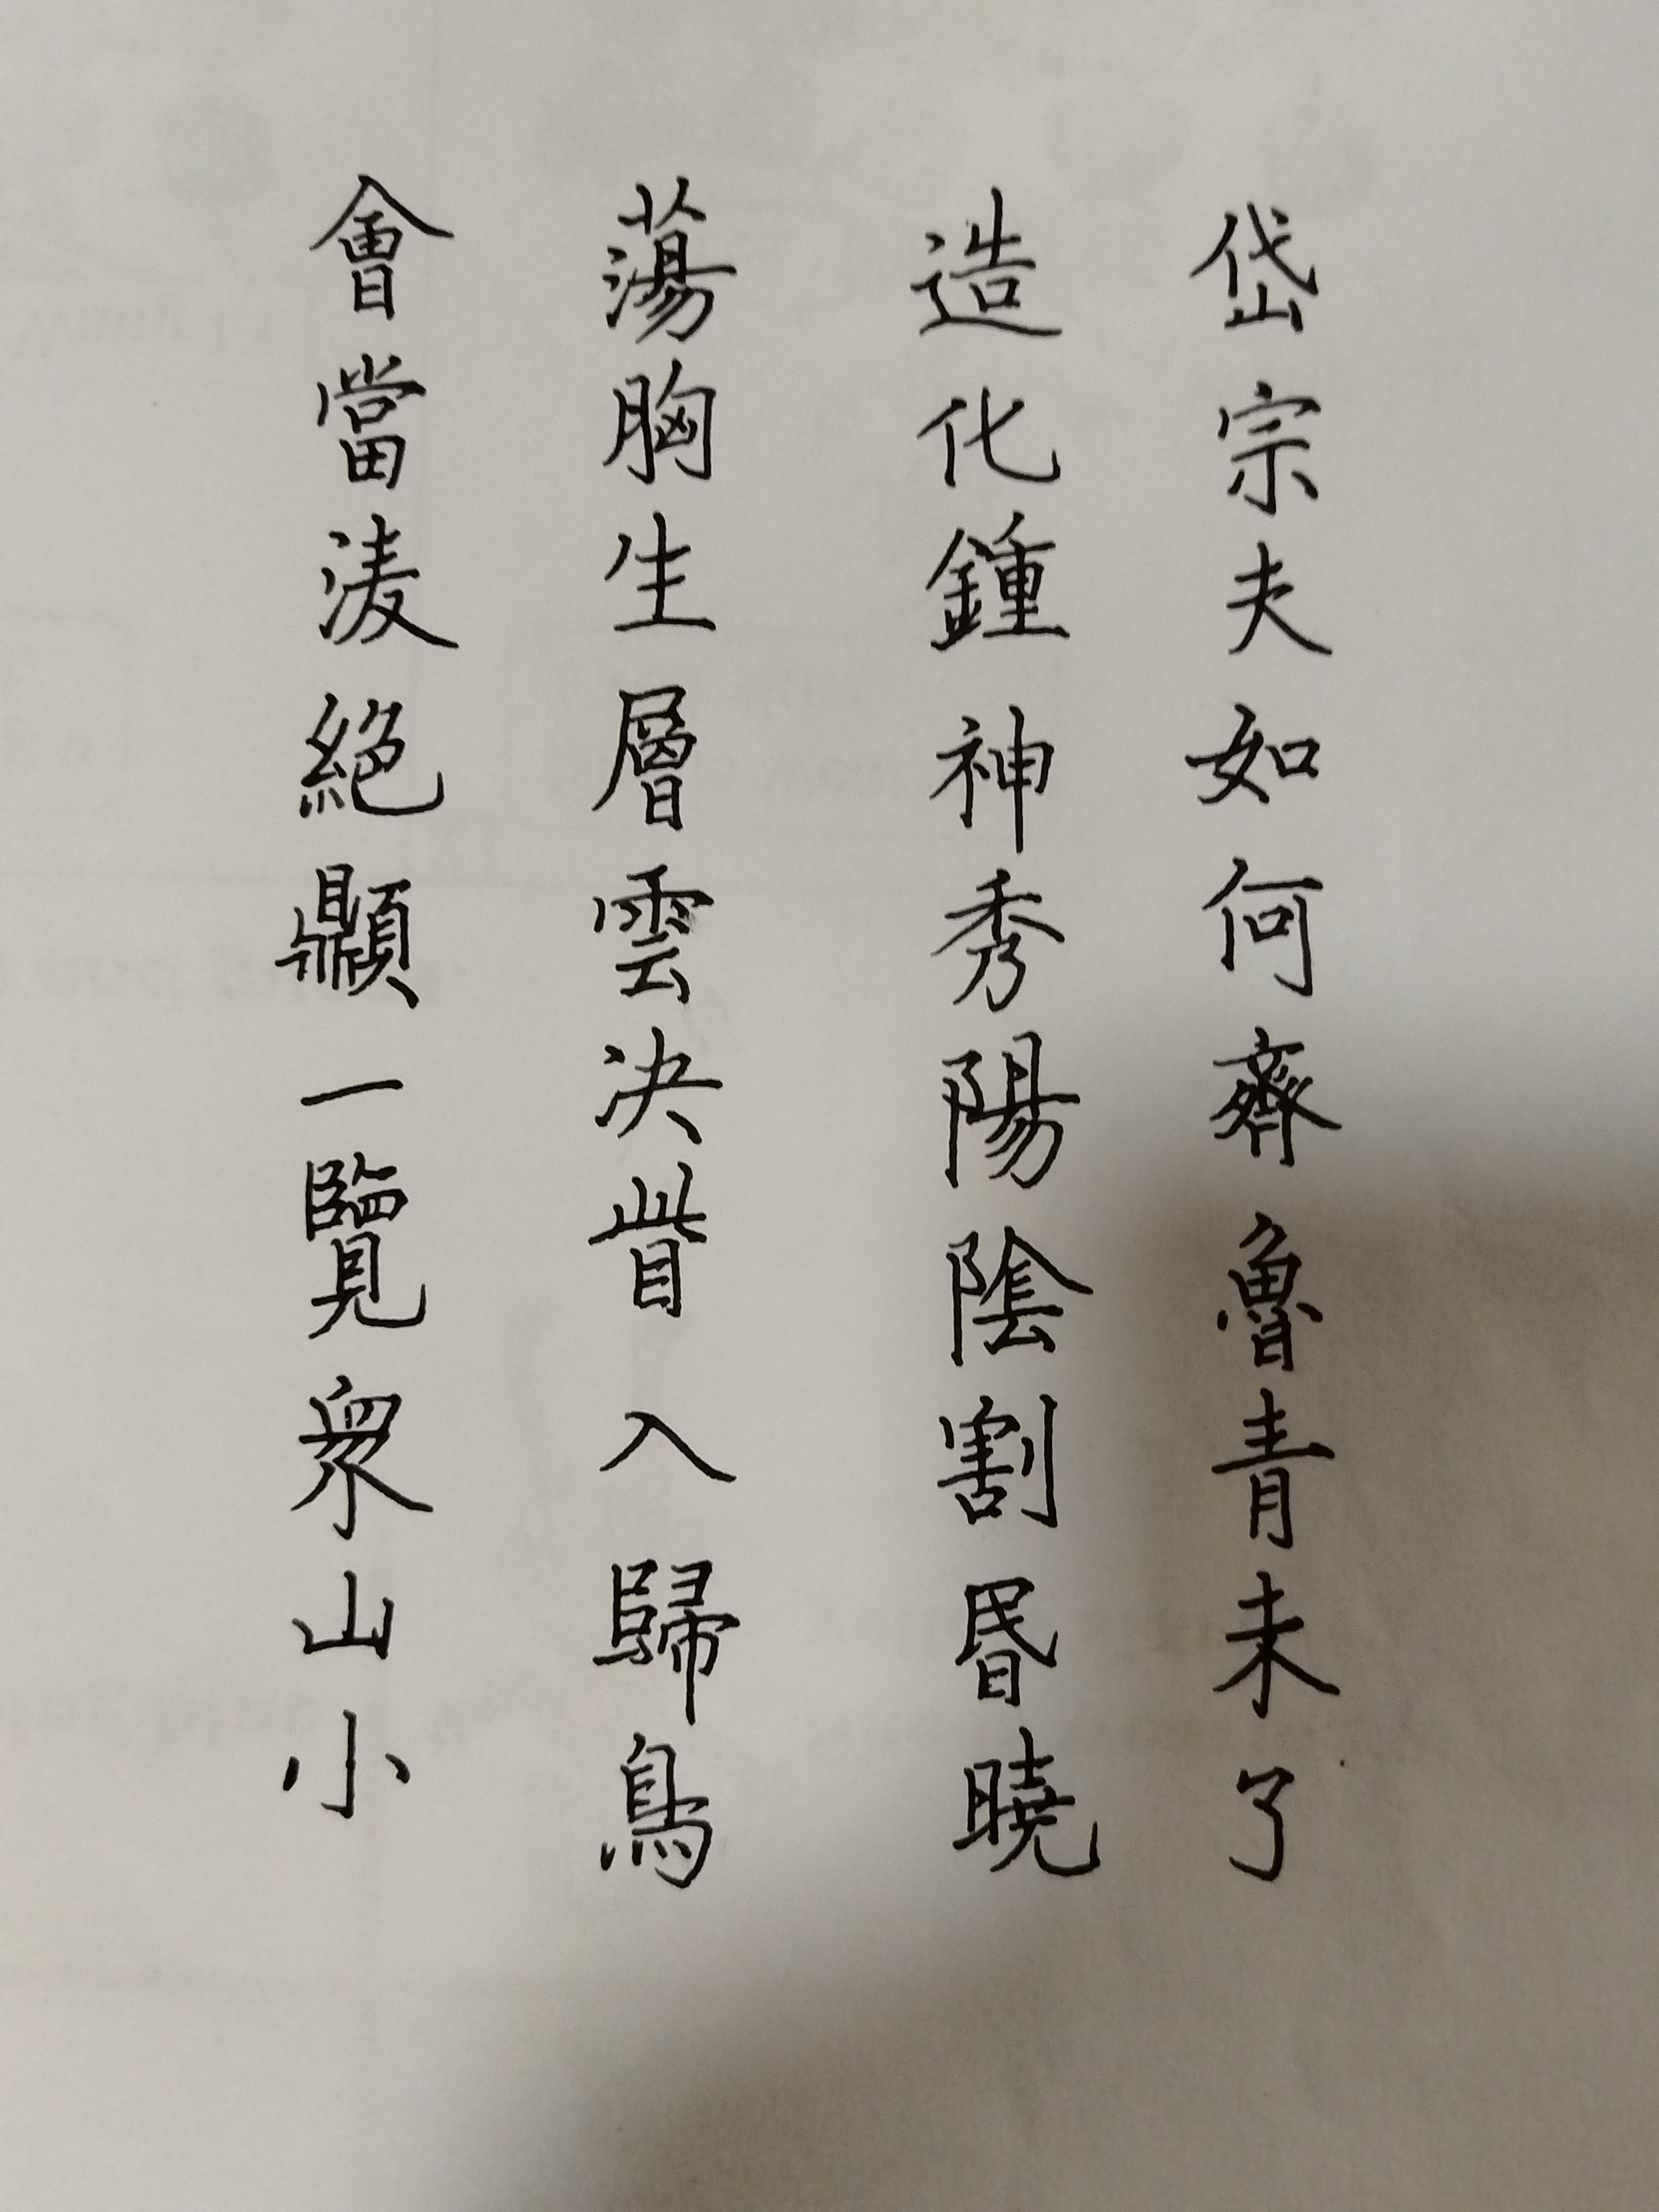 岱宗夫如何齊魯青未了
造化鍾神秀陽陰割昬曉
蕩胸生層雲決眥入歸鳥
會當淩絕顚一覽衆山小